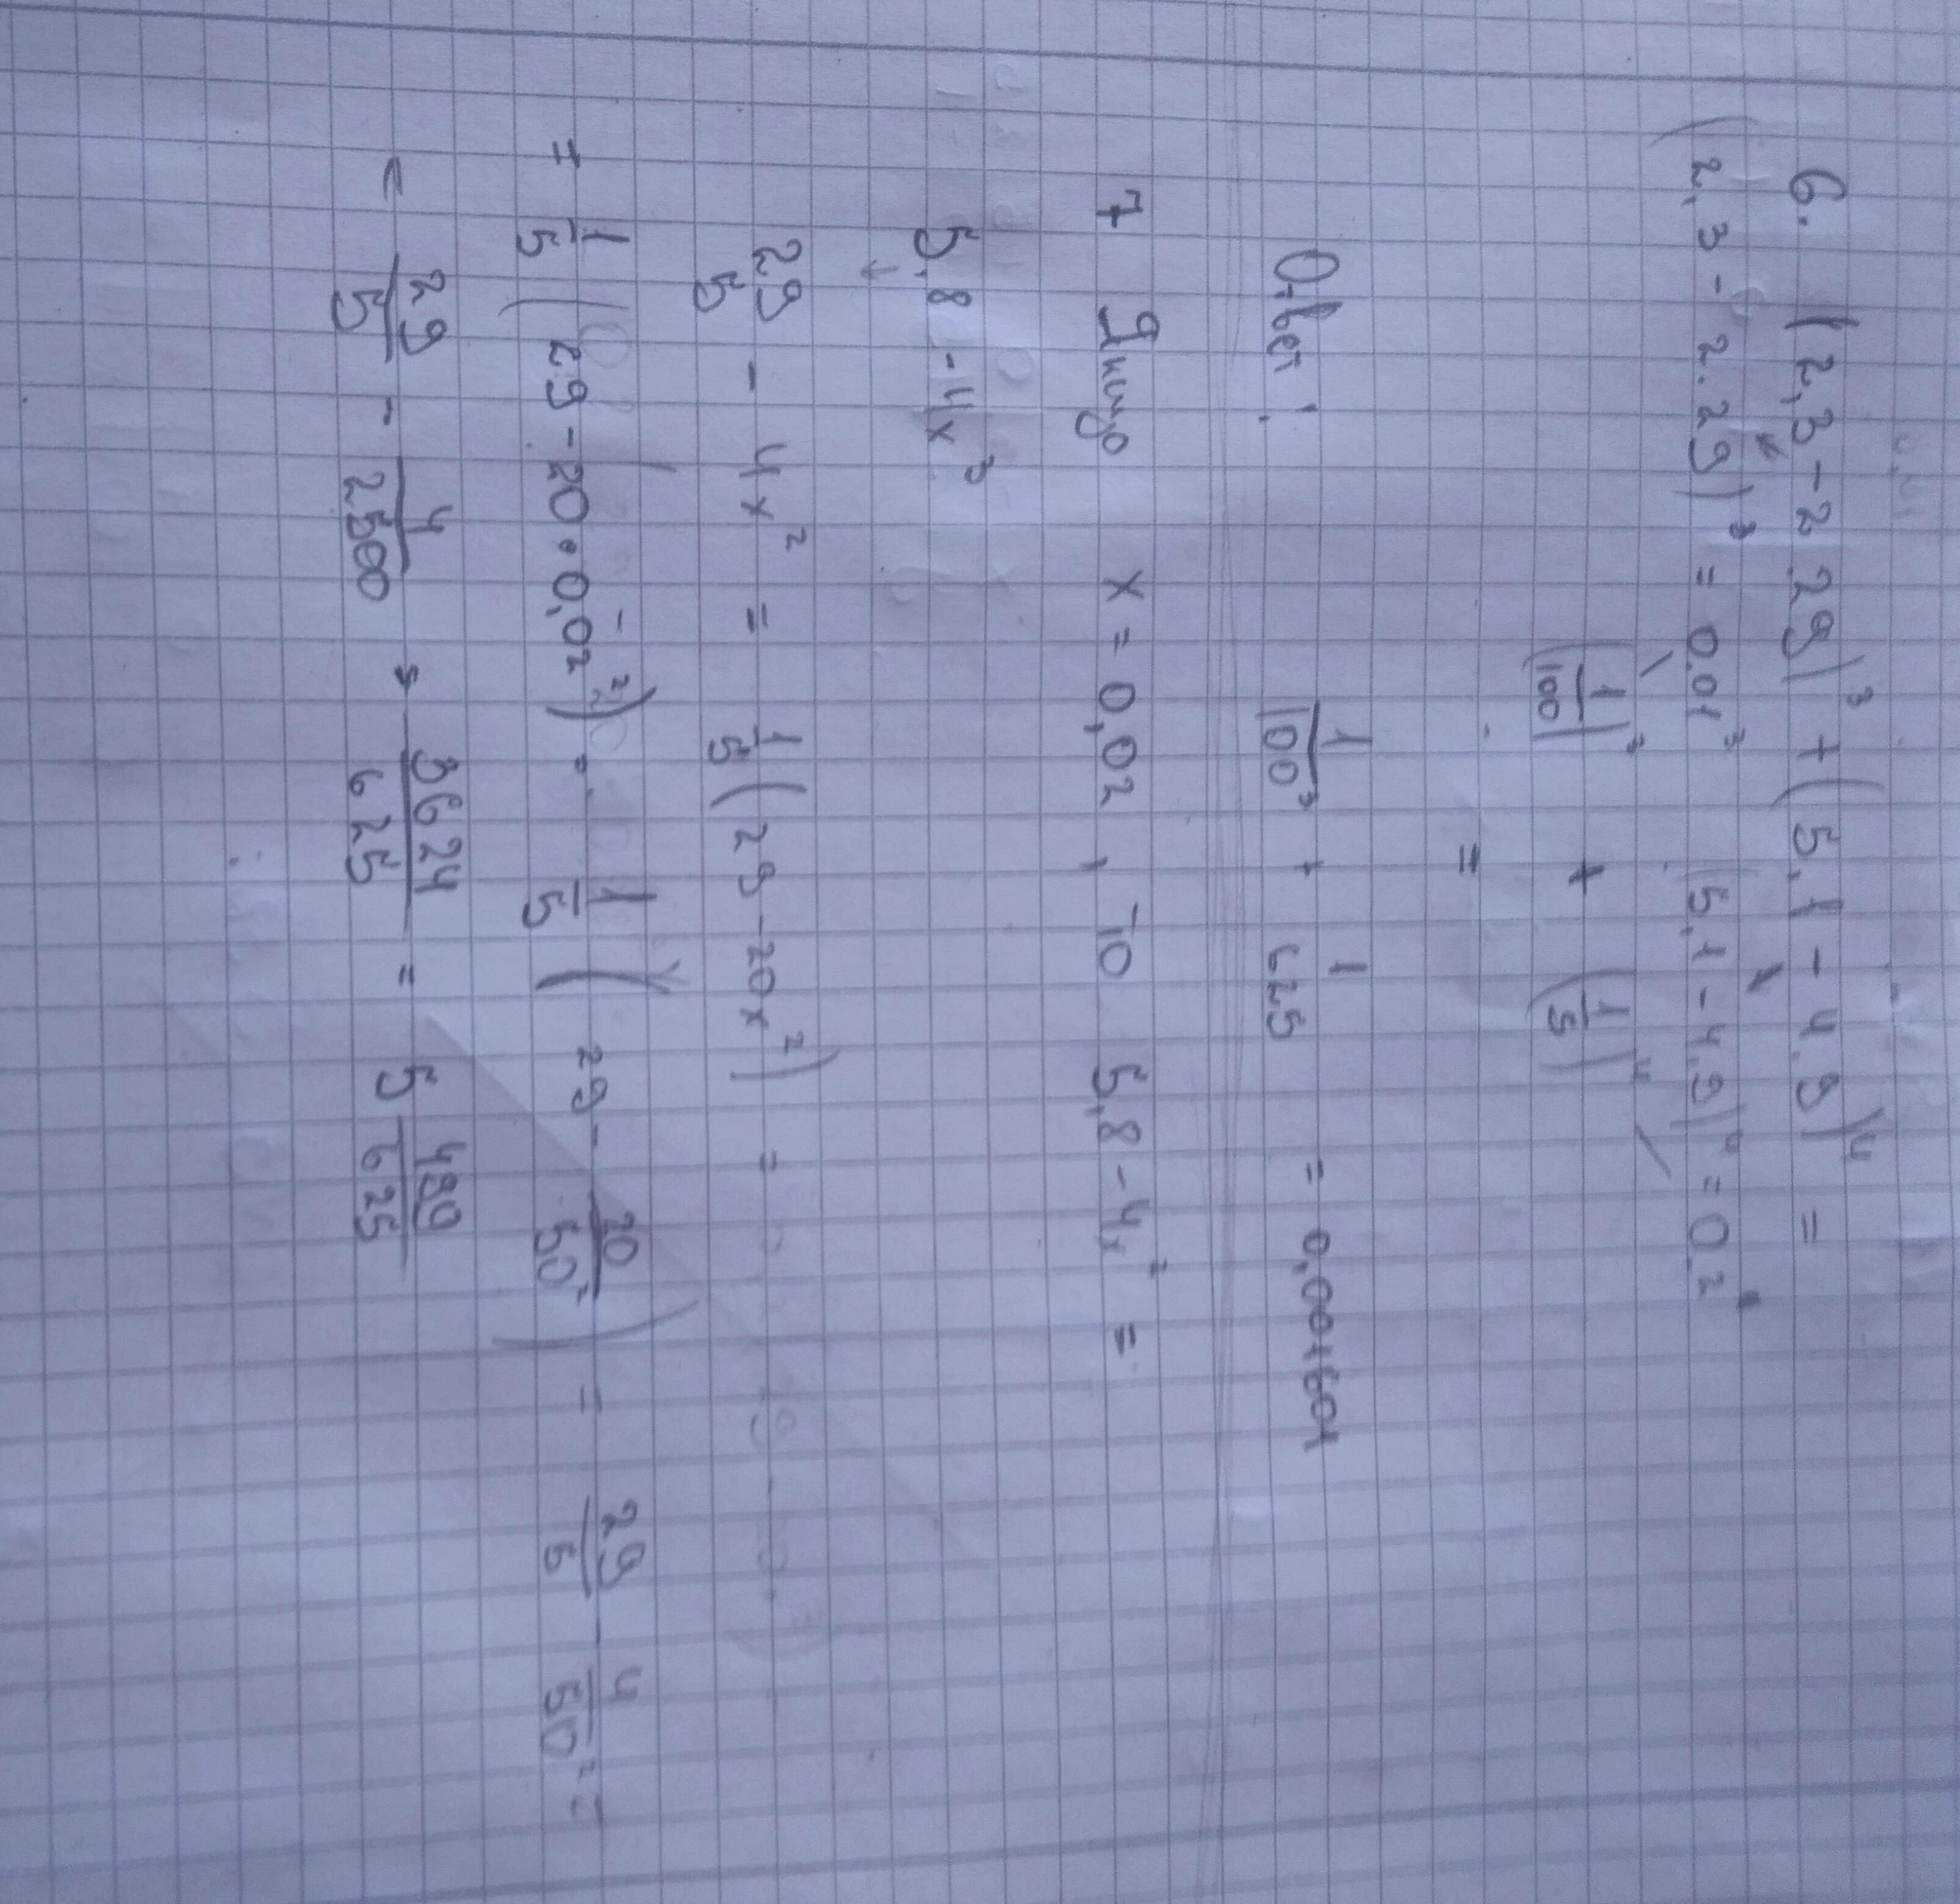 6. (2,3-2.29)³ + (5,1-4.9)⁴ =
(2,3-2.29)³ = 0.01³ (5,1-4,9)⁴ = 0,2⁴
(1/100)³ + (1/5)⁴
=
Ответ: 1/100³ + 1/625 = 0,001601
7 Якщо x = 0,02, -10 5,8-4x² =
5,8-4x³
29/5 - 4x² = 1/5(29-20x²) =
= 1/5(29-20•0,02²) = 1/5(29 - 20/50²) = 29/5 - 4/50² =
= 29/5 - 4/2500 = 3624/625 = 5 499/625